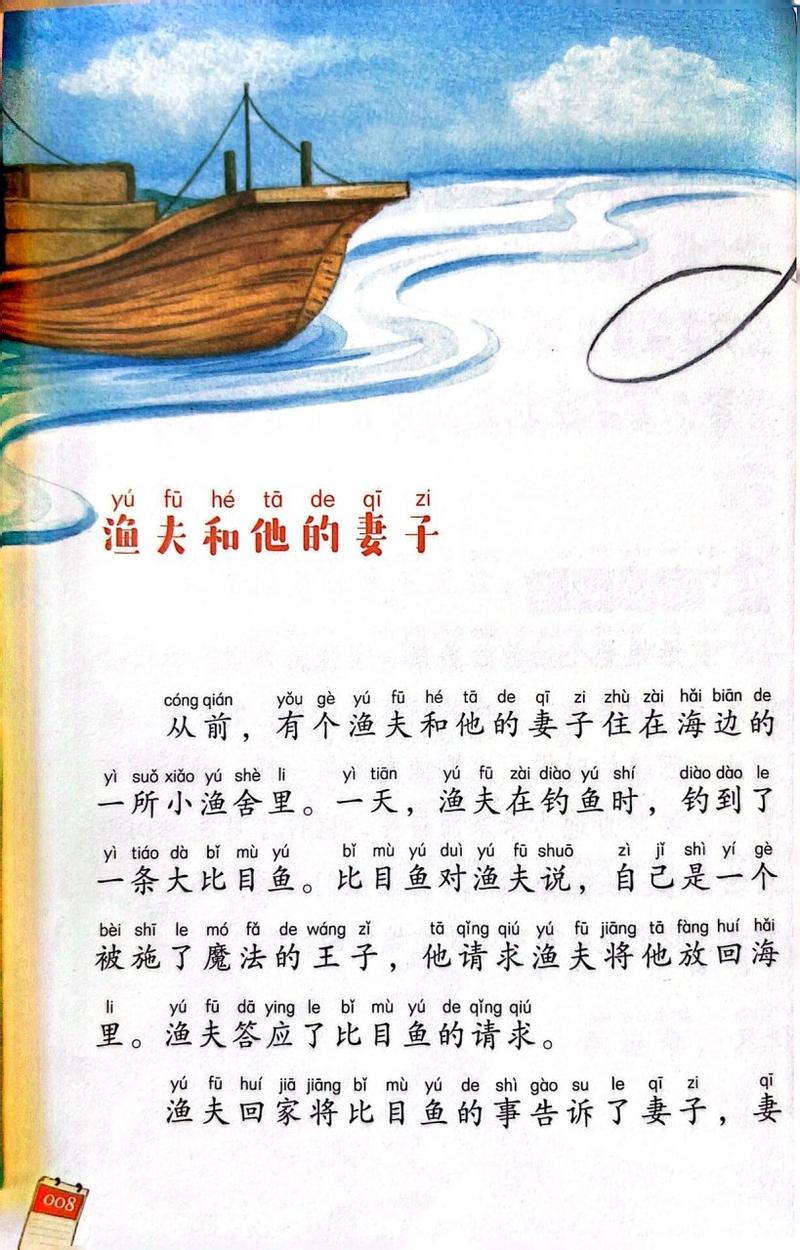 yú fū hé tā de qī zi
渔夫和他的妻子
cóng qián yǒu gè yú fū hé tā de qī zi zhù zài hǎi biān de
从前，有个渔夫和他的妻子住在海边的
yì suǒ xiǎo yú shè li yì tiān yú fū zài diào yú shí diào dào le
一所小渔舍里。一天，渔夫在钓鱼时，钓到了
yì tiáo dà bǐ mù yú bǐ mù yú duì yú fū shuō zì jǐ shì yí gè
一条大比目鱼。比目鱼对渔夫说，自己是一个
bèi shī le mó fǎ de wáng zǐ tā qǐng qiú yú fū jiāng tā fàng huí hǎi
被施了魔法的王子，他请求渔夫将他放回海
li yú fū dā ying le bǐ mù yú de qǐng qiú
里。渔夫答应了比目鱼的请求。
yú fū huí jiā jiāng bǐ mù yú de shì gào su le qī zi qī
渔夫回家将比目鱼的事告诉了妻子，妻
008